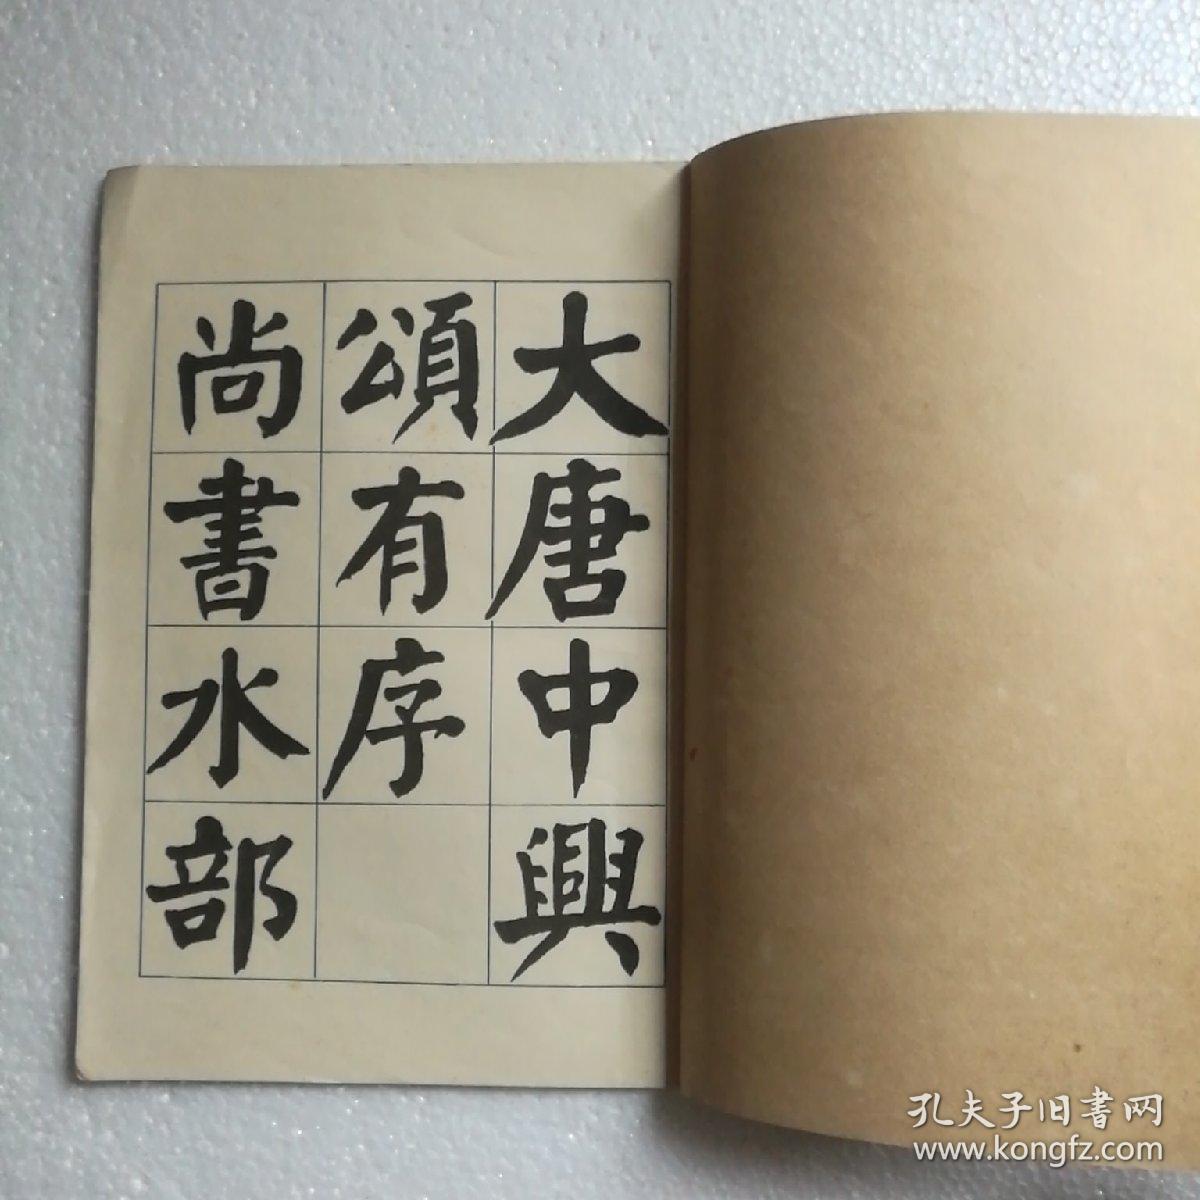 大唐中興
頌有序
尚書水部
孔夫子旧書网
www.kongfz.com